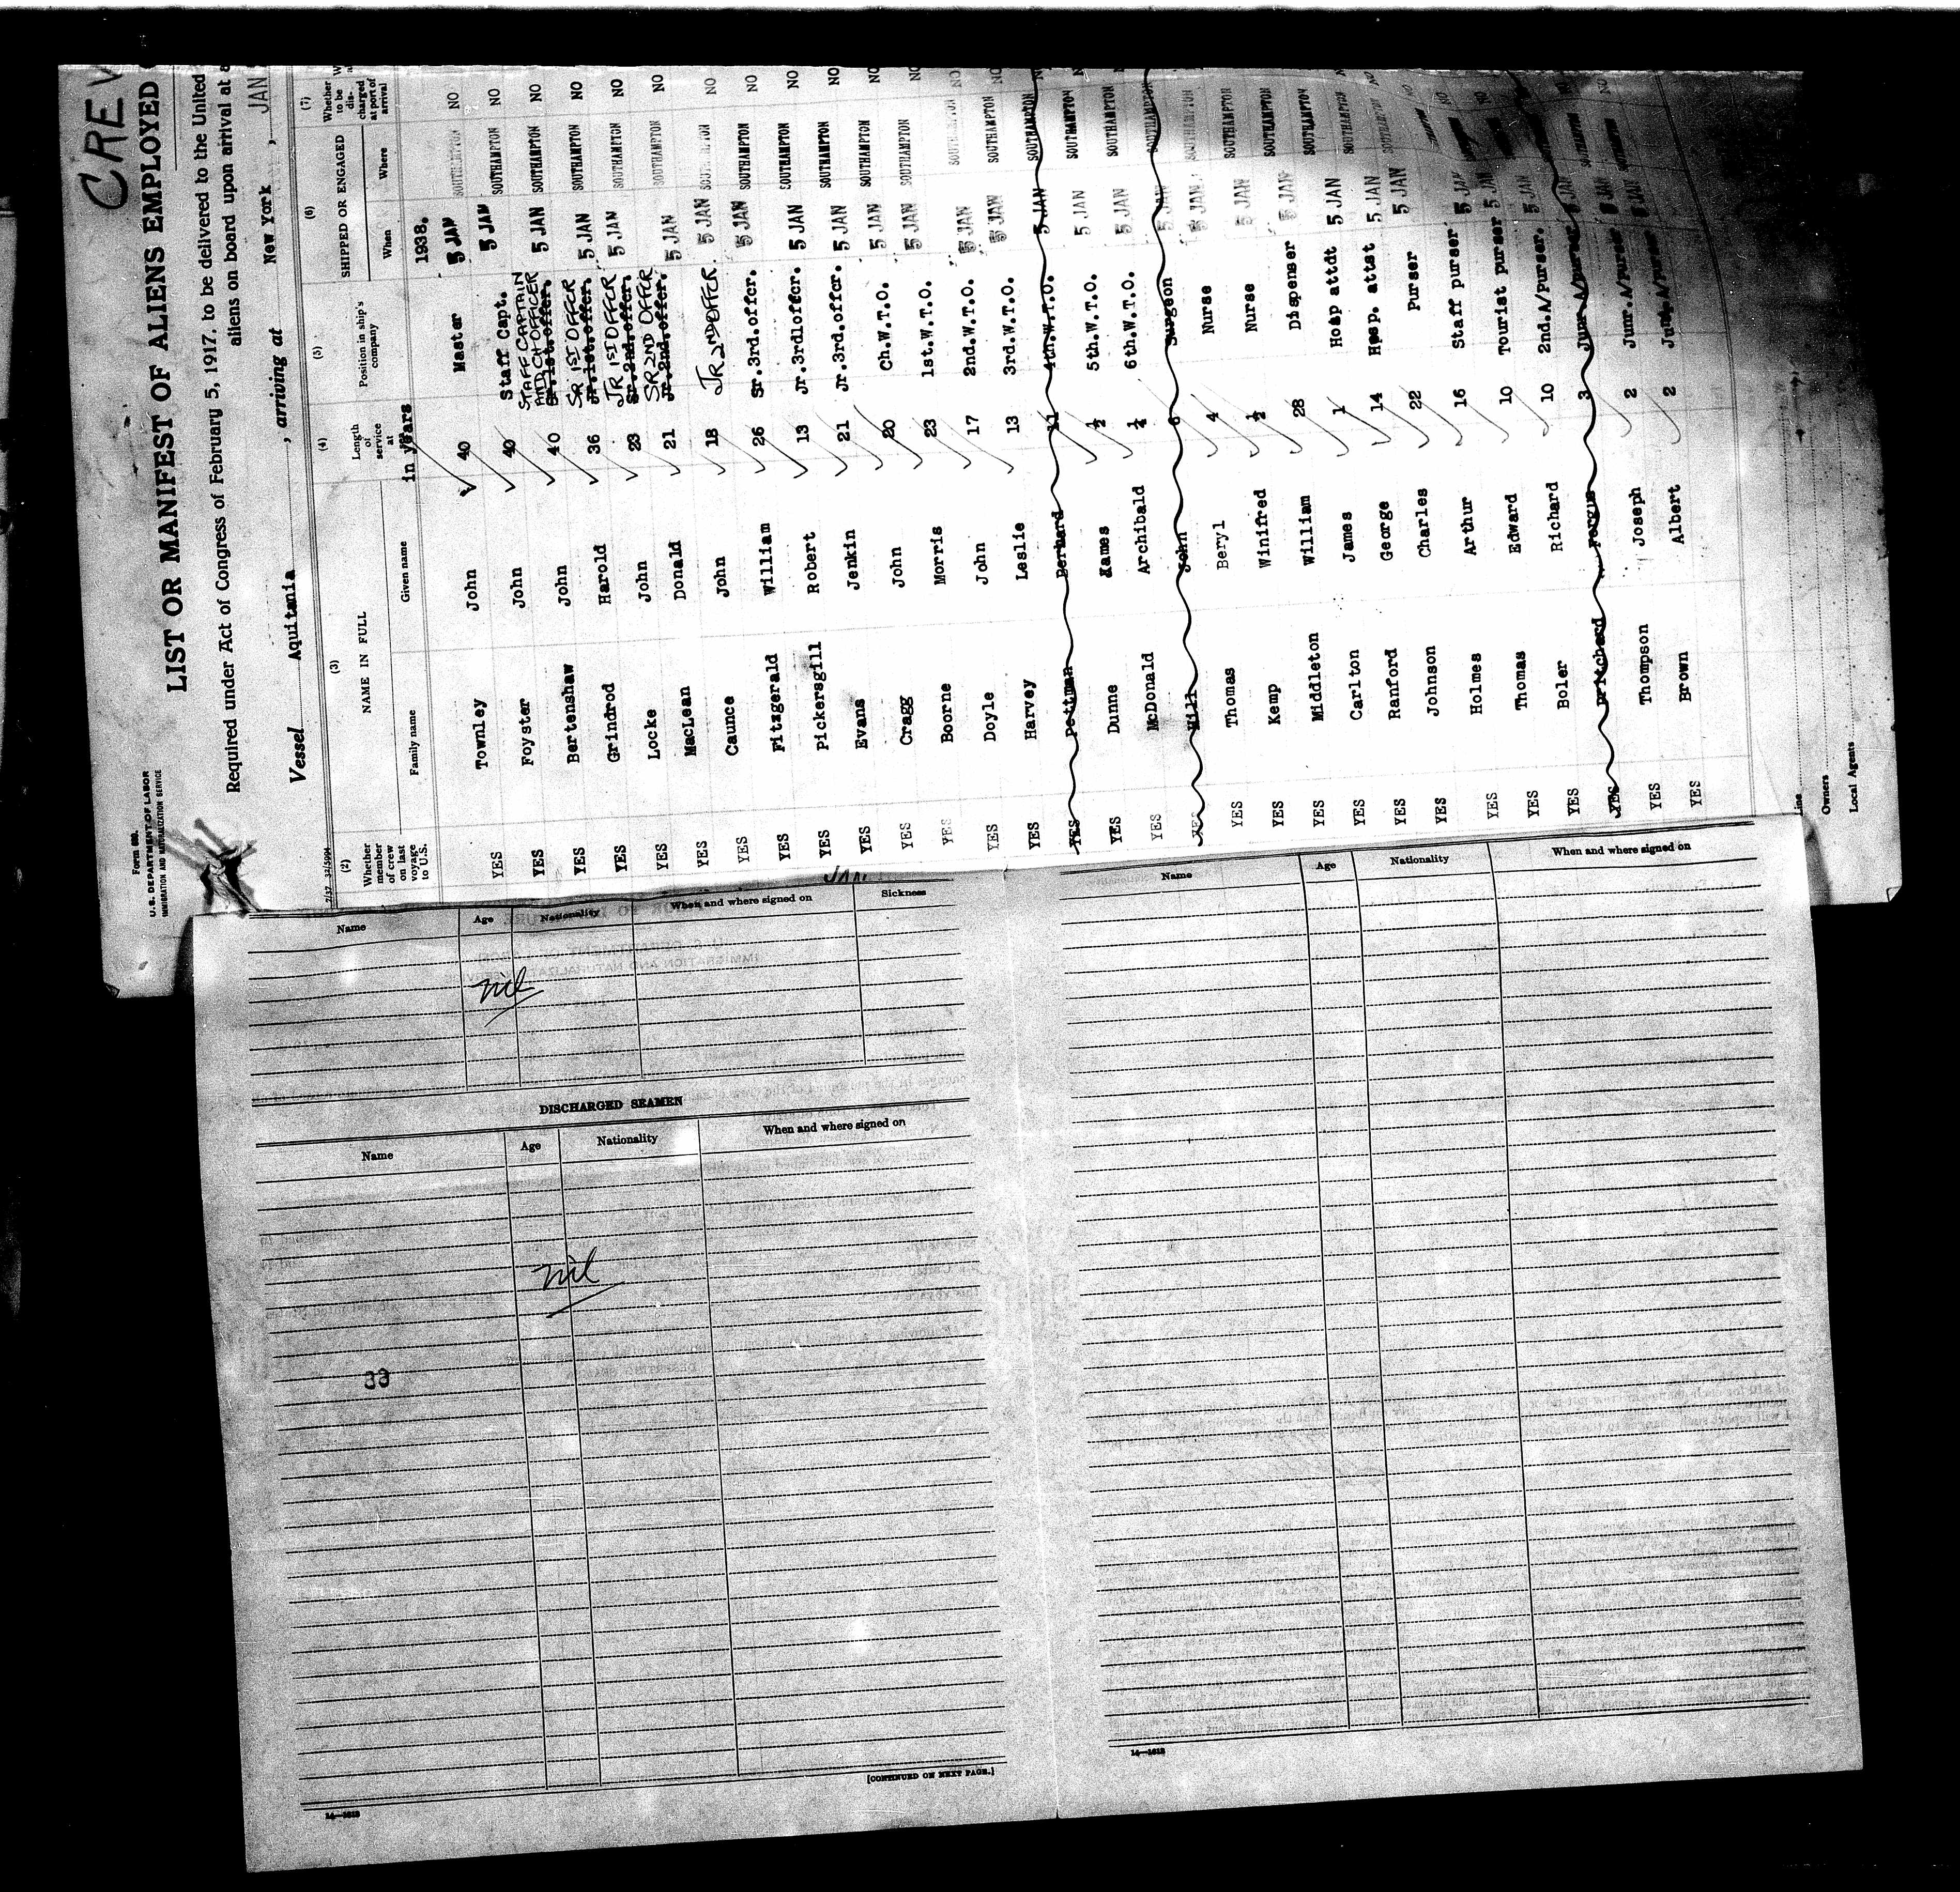 CREW
Form 689.
U.S. DEPARTMENT OF LABOR
IMMIGRATION AND NATURALIZATION SERVICE
LIST OR MANIFEST OF ALIENS EMPLOYED
Required under Act of Congress of February 5, 1917, to be delivered to the United
aliens on board upon arrival at a
Vessel Aquitania , arriving at New York , JAN
(2) (3) (4) (5) (6) (7)
Whether member of crew on last voyage to U.S. NAME IN FULL Family name Given name Length of service at in years Position in ship's company SHIPPED OR ENGAGED When Where Whether to be discharged at port of arrival
1938.
YES Townley John 40 Master 5 JAN SOUTHAMPTON NO
YES Foyster John 40 Staff Capt. 5 JAN SOUTHAMPTON NO
STAFF CAPTAIN AND CH OFFICER
YES Bertenshaw John 40 Sr.1st.offer. 5 JAN SOUTHAMPTON NO
SR 1ST OFFCR
YES Grindrod Harold 36 Jr.1st.offer. 5 JAN SOUTHAMPTON NO
JR 1ST OFFCR
YES Locke John 23 Sr.2nd.offer. 5 JAN SOUTHAMPTON NO
SR 2ND OFFCR
YES MacLean Donald 21 Jr.2nd.offer. 5 JAN SOUTHAMPTON NO
YES Caunce John 18 JR 2ND OFFCR 5 JAN SOUTHAMPTON NO
YES Fitzgerald William 26 Sr.3rd.offcr. 5 JAN SOUTHAMPTON NO
YES Pickersgill Robert 13 Jr.3rdloffer. 5 JAN SOUTHAMPTON NO
YES Evans Jenkin 21 Jr.3rd.offer. 5 JAN SOUTHAMPTON NO
YES Cragg John 20 Ch.W.T.O. 5 JAN SOUTHAMPTON NO
YES Boorne Morris 23 1st.W.T.O. 5 JAN SOUTHAMPTON NO
YES Doyle John 17 2nd.W.T.O. 5 JAN SOUTHAMPTON NO
YES Harvey Leslie 13 3rd.W.T.O. 5 JAN SOUTHAMPTON NO
YES Pettman Bernard 11 4th.W.T.O. 5 JAN SOUTHAMPTON
YES Dunne James ½ 5th.W.T.O. 5 JAN SOUTHAMPTON
YES McDonald Archibald ¼ 6th.W.T.O. 5 JAN SOUTHAMPTON
YES Hill John 6 Surgeon 5 JAN SOUTHAMPTON
YES Thomas Beryl 4 Nurse 5 JAN SOUTHAMPTON
YES Kemp Winifred ½ Nurse 5 JAN SOUTHAMPTON
YES Middleton William 28 Dispenser 5 JAN SOUTHAMPTON
YES Carlton James 1 Hosp attdt 5 JAN SOUTHAMPTON
YES Ranford George 14 Hosp. attst 5 JAN SOUTHAMPTON NO
YES Johnson Charles 22 Purser 5 JAN SOUTHAMPTON NO
YES Holmes Arthur 16 Staff purser 5 JAN NO
YES Thomas Edward 10 Tourist purser 5 JAN NO
YES Boler Richard 10 2nd.A/Purser. 5 JAN NO
YES Pritchard Fergus 3 Junr.A/Purser 5 JAN SOUTHAMPTON NO
YES Thompson Joseph 2 Junr.A/Purser 5 JAN SOUTHAMPTON NO
YES Brown Albert 2 Junr.A/Purser 5 JAN SOUTHAMPTON NO
Line
Owners
Local Agents
JAN
Name Age Nationality When and where signed on Sickness
nil
DISCHARGED SEAMEN
Name Age Nationality When and where signed on
nil
33
[CONTINUED ON NEXT PAGE.]
14—1613
Name Age Nationality When and where signed on
14—1613